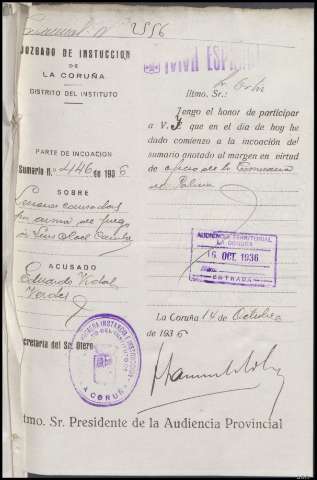 Nº 2556
JUZGADO DE INSTUCCION
DE
LA CORUÑA
DISTRITO DEL INSTITUTO
¡VIVA ESPAÑA!
Iltmo. Sr.:
Tengo el honor de participar
a V. I. que en el día de hoy he
dado comienzo a la incoación del
sumario anotado al margen en virtud
de oficio de la Comisaria
de
PARTE DE INCOACION
Sumario N.º 446 de 1936
SOBRE
Lesiones causadas
por arma de fuego
a
ACUSADO
Eduardo Vidal
AUDIENCIA TERRITORIAL
LA CORUÑA
16 OCT. 1936
ENTRADA
La Coruña 14 de Octubre
de 1936
Secretaria del Sr. Otero
PRIMERA INSTANCIA E INSTRUCCION
CORUÑA
Iltmo. Sr. Presidente de la Audiencia Provincial